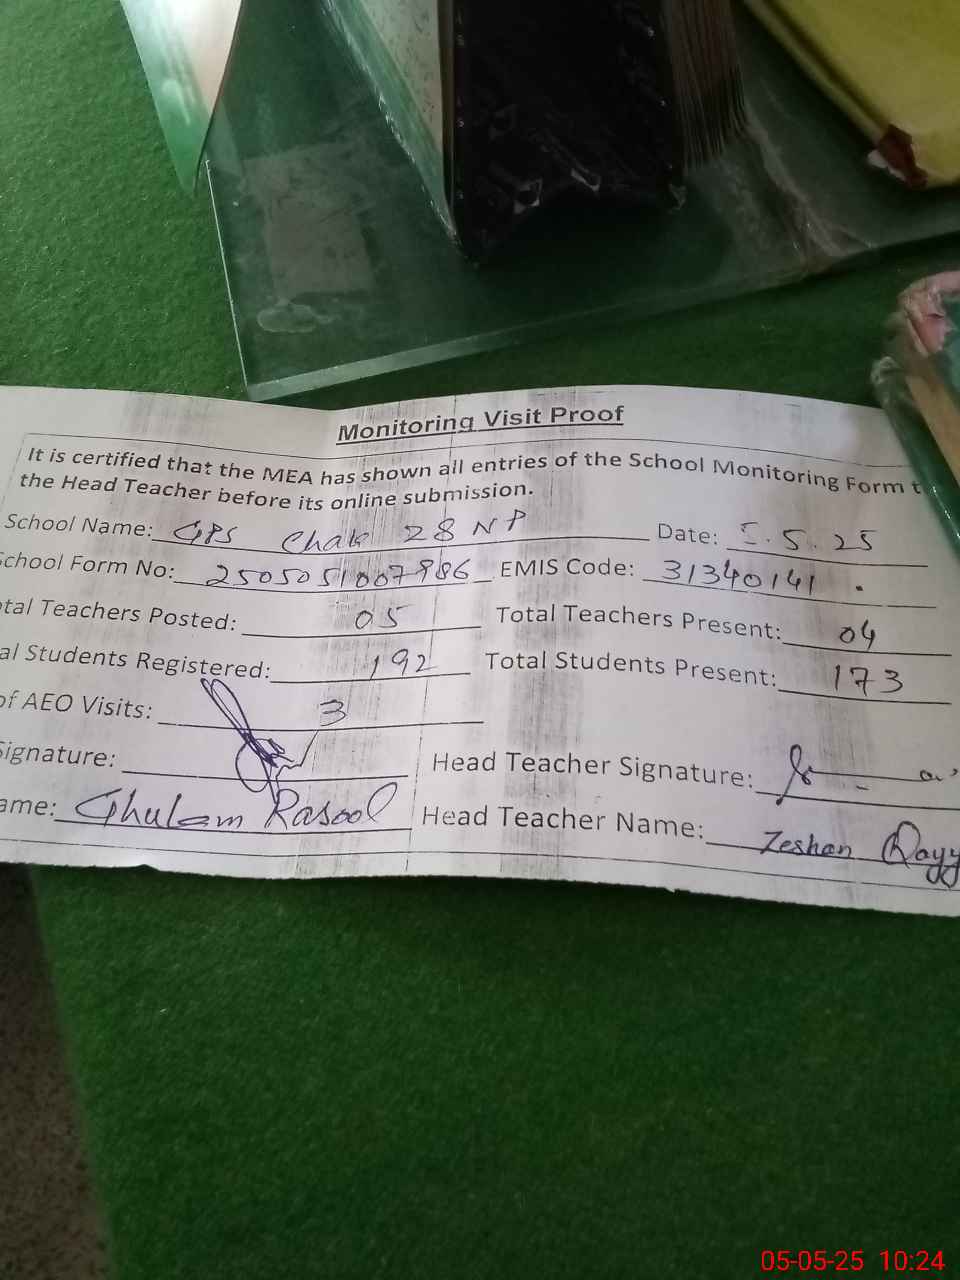 Monitoring Visit Proof
It is certified that the MEA has shown all entries of the School Monitoring Form t
the Head Teacher before its online submission.
School Name: GPS Chak 28 NP Date: 5.5.25
School Form No: 2505051007986 EMIS Code: 31340141
tal Teachers Posted: 05 Total Teachers Present: 04
al Students Registered: 192 Total Students Present: 173
of AEO Visits: 3
Signature: Head Teacher Signature:
ame: Ghulam Rasool Head Teacher Name: Zeshan
05-05-25 10:24